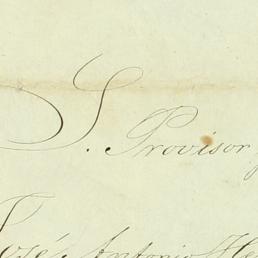 S. Provisor
José Antonio He